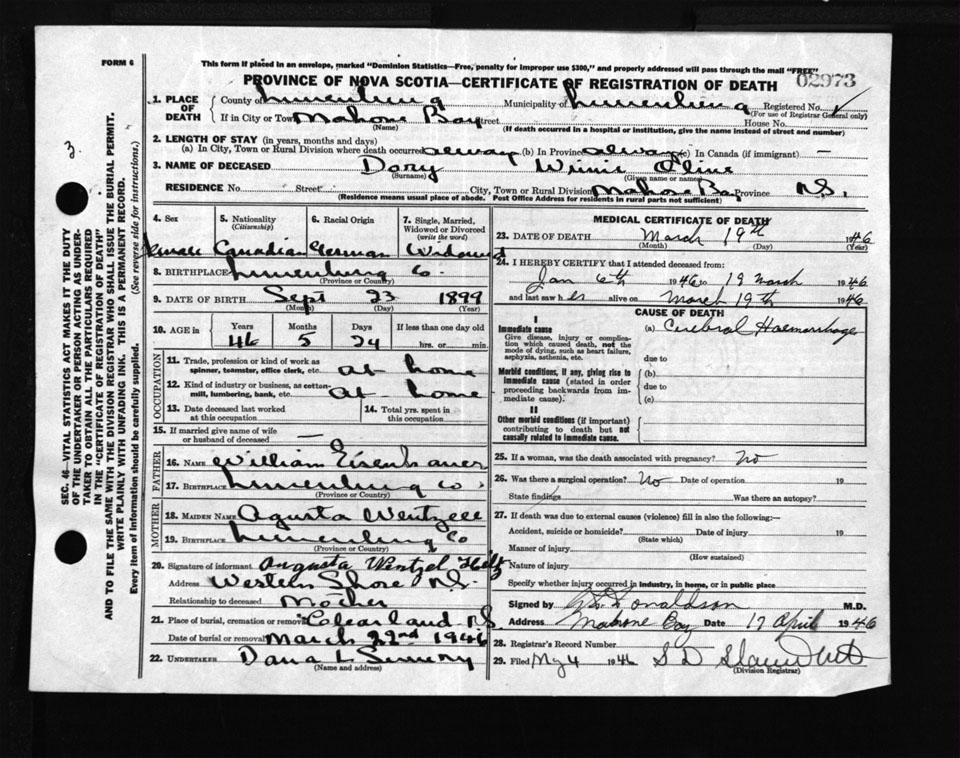 FORM 6
This form if placed in an envelope, marked "Dominion Statistics—Free, penalty for improper use $300," and properly addressed will pass through the mail "FREE"
PROVINCE OF NOVA SCOTIA—CERTIFICATE OF REGISTRATION OF DEATH
02973
1. PLACE OF DEATH
County of Lunenburg Municipality of Lunenburg Registered No.
(For use of Registrar General only)
If in City or Town Mahone Bay Street House No.
(Name) (If death occurred in a hospital or institution, give the name instead of street and number)
2. LENGTH OF STAY (in years, months and days)
(a) In City, Town or Rural Division where death occurred always (b) In Province always (c) In Canada (if immigrant) —
3. NAME OF DECEASED Dory Winni Oline
(Surname) (Given name or names)
RESIDENCE No. Street City, Town or Rural Division Mahone Bay Province N.S.
(Residence means usual place of abode. Post Office Address for residents in rural parts not sufficient)
4. Sex 5. Nationality (Citizenship) 6. Racial Origin 7. Single, Married, Widowed or Divorced (write the word)
Female Canadian German Widowed
8. BIRTHPLACE Lunenburg Co.
(Province or Country)
9. DATE OF BIRTH Sept 23 1899
(Month) (Day) (Year)
10. AGE in Years Months Days If less than one day old
46 5 24 hrs. or min.
OCCUPATION
11. Trade, profession or kind of work as spinner, teamster, office clerk, etc. at home
12. Kind of industry or business, as cotton-mill, lumbering, bank, etc. at home
13. Date deceased last worked at this occupation
14. Total yrs. spent in this occupation
15. If married give name of wife or husband of deceased —
FATHER
16. NAME William Eisenhauer
17. BIRTHPLACE Lunenburg Co.
(Province or Country)
MOTHER
18. MAIDEN NAME Agusta Wentzell
19. BIRTHPLACE Lunenburg Co
(Province or Country)
20. Signature of informant Augusta Wentzel
Address Western Shore N.S.
Relationship to deceased Mother
21. Place of burial, cremation or removal Clearland N.S.
Date of burial or removal March 22nd 1946
22. UNDERTAKER Dana L
(Name and address)
MEDICAL CERTIFICATE OF DEATH
23. DATE OF DEATH March 19th 1946
(Month) (Day) (Year)
24. I HEREBY CERTIFY that I attended deceased from:
Jan 6th 1946 to 19 March 1946
and last saw her alive on March 19th 1946
CAUSE OF DEATH
I
Immediate cause (a) Cerebral Haemorrhage
Give disease, injury or complication which caused death, not the mode of dying, such as heart failure, asphyxia, asthenia, etc.
due to
Morbid conditions, if any, giving rise to immediate cause (stated in order proceeding backwards from immediate cause).
(b)
due to
(c)
II
Other morbid conditions (if important) contributing to death but not causally related to immediate cause.
25. If a woman, was the death associated with pregnancy? No
26. Was there a surgical operation? No Date of operation 19
State findings Was there an autopsy?
27. If death was due to external causes (violence) fill in also the following:—
Accident, suicide or homicide? Date of injury 19
(State which)
Manner of injury
(How sustained)
Nature of injury
Specify whether injury occurred in industry, in home, or in public place
Signed by Donaldson M.D.
Address Mahone Bay Date 17 April 1946
28. Registrar's Record Number
29. Filed My 4 1946 S D
(Division Registrar)
3.
SEC. 46—VITAL STATISTICS ACT MAKES IT THE DUTY
OF THE UNDERTAKER OR PERSON ACTING AS UNDER-
TAKER TO OBTAIN ALL THE PARTICULARS REQUIRED
IN THE "CERTIFICATE OF REGISTRATION OF DEATH"
AND TO FILE THE SAME WITH THE DIVISION REGISTRAR WHO SHALL ISSUE THE BURIAL PERMIT.
WRITE PLAINLY WITH UNFADING INK. THIS IS A PERMANENT RECORD.
Every item of information should be carefully supplied. (See reverse side for instructions.)